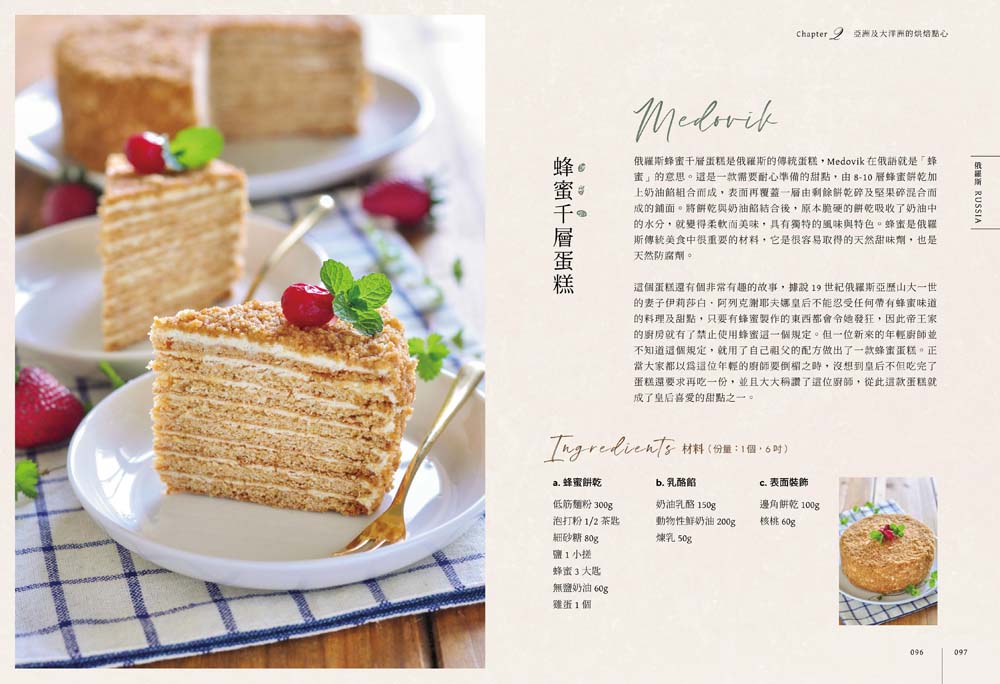 Chapter 2 亞洲及大洋洲的烘焙點心
Medovik
蜂蜜千層蛋糕
俄羅斯 RUSSIA
俄羅斯蜂蜜千層蛋糕是俄羅斯的傳統蛋糕,Medovik 在俄語就是「蜂
蜜」的意思。這是一款需要耐心準備的甜點,由 8-10 層蜂蜜餅乾加
上奶油餡組合而成,表面再覆蓋一層由剩餘餅乾碎及堅果碎混合而
成的鋪面。將餅乾與奶油餡結合後,原本脆硬的餅乾吸收了奶油中
的水分,就變得柔軟而美味,具有獨特的風味與特色。蜂蜜是俄羅
斯傳統美食中很重要的材料,它是很容易取得的天然甜味劑,也是
天然防腐劑。
這個蛋糕還有個非常有趣的故事,據說 19 世紀俄羅斯亞歷山大一世
的妻子伊莉莎白·阿列克謝耶夫娜皇后不能忍受任何帶有蜂蜜味道
的料理及甜點,只要有蜂蜜製作的東西都會令她發狂,因此帝王家
的廚房就有了禁止使用蜂蜜這一個規定。但一位新來的年輕廚師並
不知道這個規定,就用了自己祖父的配方做出了一款蜂蜜蛋糕。正
當大家都以為這位年輕的廚師要倒楣之時,沒想到皇后不但吃完了
蛋糕還要求再吃一份,並且大大稱讚了這位廚師,從此這款蛋糕就
成了皇后喜愛的甜點之一。
Ingredients 材料(份量:1個,6吋)
a. 蜂蜜餅乾
低筋麵粉 300g
泡打粉 1/2 茶匙
細砂糖 80g
鹽 1 小搓
蜂蜜 3 大匙
無鹽奶油 60g
雞蛋 1 個
b. 乳酪餡
奶油乳酪 150g
動物性鮮奶油 200g
煉乳 50g
c. 表面裝飾
邊角餅乾 100g
核桃 60g
096
097